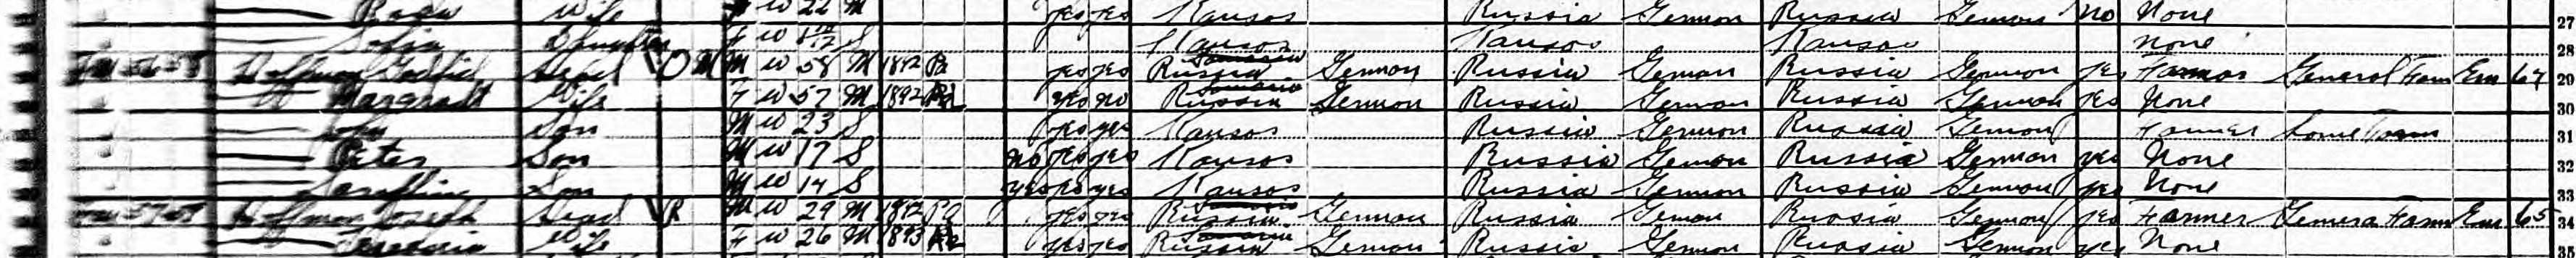 Wife F W 22 M yes yes Kansas Russia German Russia German no None 27
Sofia Daughter F W 1 10/12 S Kansas Kansas Kansas None 28
Fm 56 58 Hoffman Head O M M W 58 M 1892 Pa yes yes Russia German Russia German Russia German yes Farmer General Farm Em 64 29
Margaret Wife F W 57 M 1892 Pa yes no Russia German Russia German Russia German yes None 30
Son M W 23 S yes yes Kansas Russia German Russia German Farmer Home Farm 31
Peter Son M W 17 S no yes yes Kansas Russia German Russia German yes None 32
Seraffin Son M W 14 S yes yes yes Kansas Russia German Russia German yes None 33
Fm 57 59 Hoffman Joseph Head R M W 29 M 1892 Pa yes yes Russia German Russia German Russia German yes Farmer General Farm Em 65 34
Wife F W 26 M 1893 Pa yes yes Russia German Russia German Russia German yes None 35